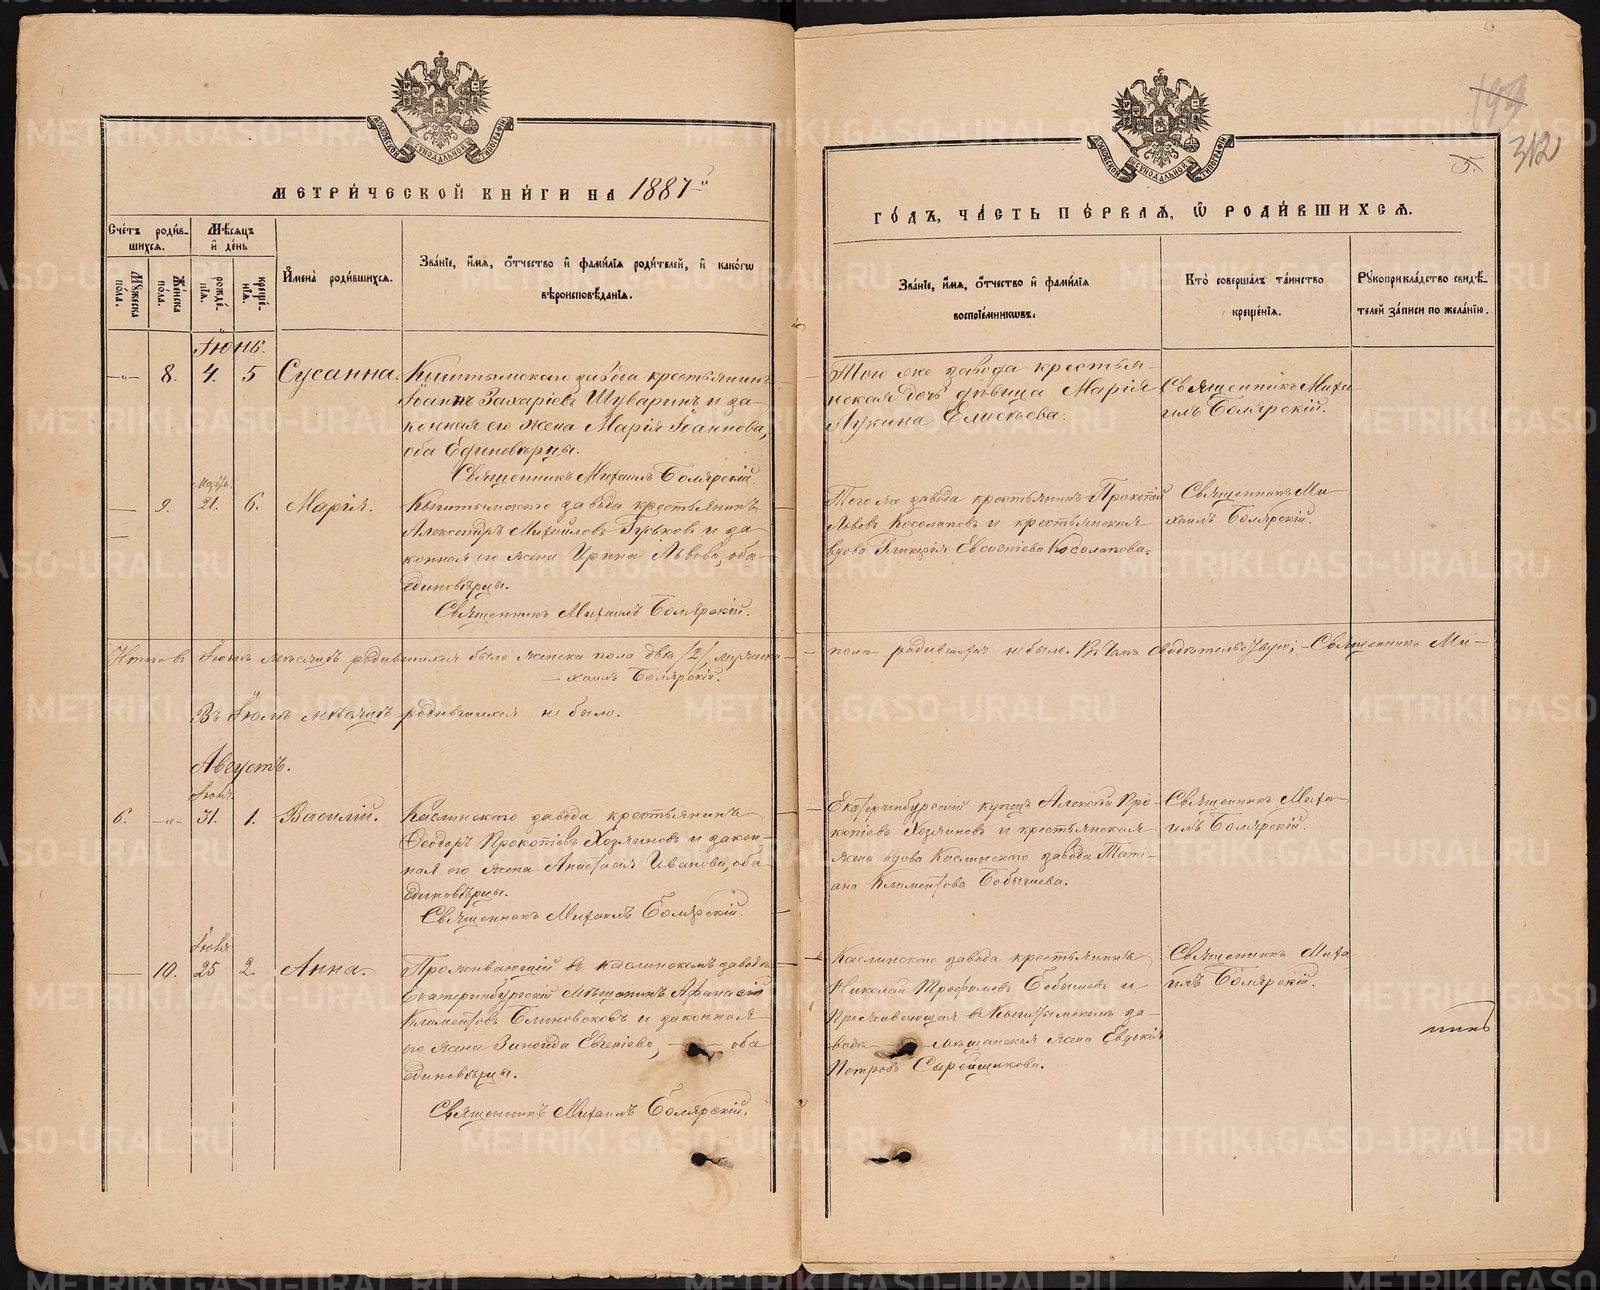 МЕТРИ́ЧЕСКОЙ КНИ́ГИ НА 1887 й
Сче́тъ роди́в-
шихся.
Мѣ́сяцъ
и҆ де́нь
Мꙋ́жеска
по́ла.
Же́нска
по́ла.
рожде́-
нїѧ.
креще́-
нїѧ.
И҆мена̀ роди́вшихся.
Зва́нїе, и҆́мѧ, ѻ҆́тчество и҆ фами́лїѧ роди́телей, и҆ како́гѡ
вѣроисповѣ́данїѧ.
Іюнь.
—"— 8. 4. 5 Сусанна.
Кыштымскаго завода крестьянинъ
Іоаннъ Захаріевъ Шуваринъ и за-
конная его жена Марія Іоаннова,
оба Единовѣрцы.
Священникъ Михаилъ Болярскій.
— 9. 21. 6. Марія.
Кыштымскаго завода крестьянинъ
Александръ Михайловъ Гурьковъ и за-
конная его жена Ирина Львова, оба
единовѣрцы.
Священникъ Михаилъ Болярскій.
Итого въ Іюнѣ мѣсяцѣ родившихся было женска пола два /2/, мужеска
— хаилъ Болярскій.
Въ Іюлѣ мѣсяцѣ родившихся не было.
Августъ.
Іюля
6. —"— 31. 1. Василій.
Каслинскаго завода крестьянинъ
Ѳеодоръ Прокопіевъ Хозяиновъ и закон-
ная его жена Анастасія Иванова, оба
единовѣрцы.
Священникъ Михаилъ Болярскій.
Іюля
— 10. 25 2. Анна.
Проживающій въ Каслинскомъ заводѣ
Екатеринбургскій мѣщанинъ Афанасій
Климентовъ Блиновсковъ и законная
его жена Зиноида Евгеніева, — оба
единовѣрцы.
Священникъ Михаилъ Болярскій.
193
312
ГО́ДЪ, ЧА́СТЬ ПЕ́РВАѦ, Ѡ҆ РОДИ́ВШИХСѦ.
Зва́нїе, и҆́мѧ, ѻ҆́тчество и҆ фами́лїѧ
воспрїе́мникѡвъ.
Кто̀ соверша́лъ та́инство
креще́нїѧ.
Рꙋкоприкла́дство свидѣ́-
телей за́писи по жела́нїю.
Того же завода крестьян-
нская дочь дѣвица Марія
Лукина Елисѣева.
Священникъ Миха-
илъ Болярскій.
Того же завода крестьянинъ Прокопій
Львовъ Косолаповъ и крестьянская
вдова Гликерія Евсевіева Косолапова.
Священникъ Ми-
хаилъ Болярскій.
пола родившихся не был. Въ чемъ свидѣтельствую; Священникъ Ми-
Екатеринбургскій купецъ Алексѣй Про-
копіевъ Хозяиновъ и крестьянская
жена вдова Каслинскаго завода Тати-
ана Климентова Бобышева.
Священникъ Миха-
илъ Болярскій.
Каслинскаго завода крестьянинъ
Николай Трофимовъ Бобышевъ и
Проживающая въ Кыштымскомъ за-
водѣ — мѣщанская жена Евдокія
Петрова Сырейщикова.
Священникъ Миха-
илъ Болярскій.